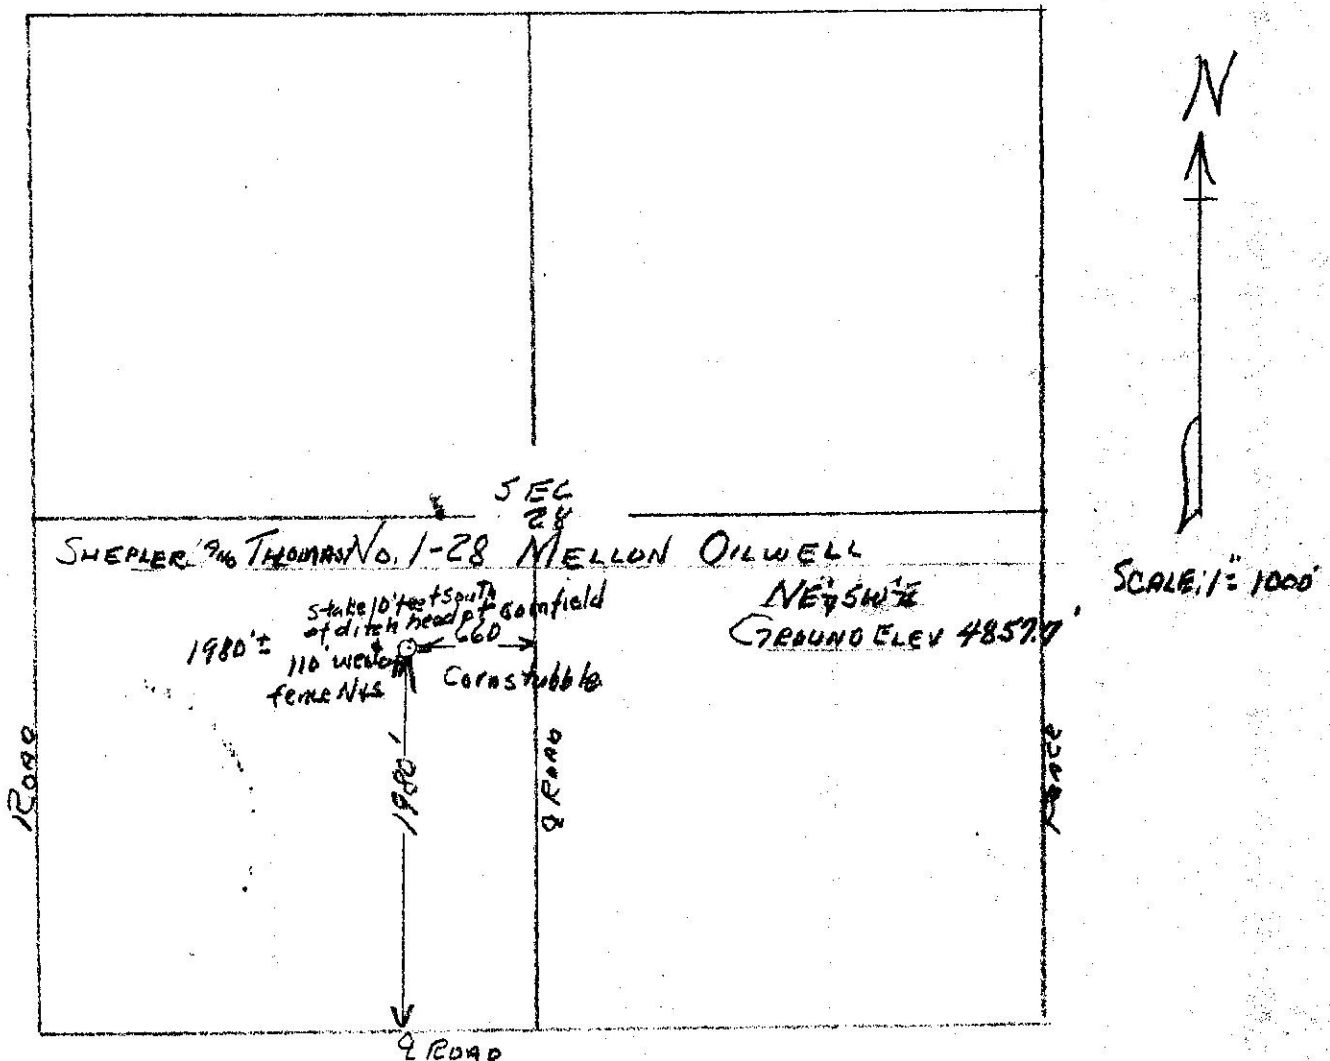 N
SEC
28
SHEPLER & THOMAS No. 1-28 MELLON OILWELL
SCALE: 1" = 1000'
NE¼ SW¼
GROUND ELEV 4857.7'
stake 10 feet south
of ditch head pt cornfield
1980'±
660
110' west of
fence N&S
Cornstubble
1980'
ROAD
ROAD
ROAD
ROAD